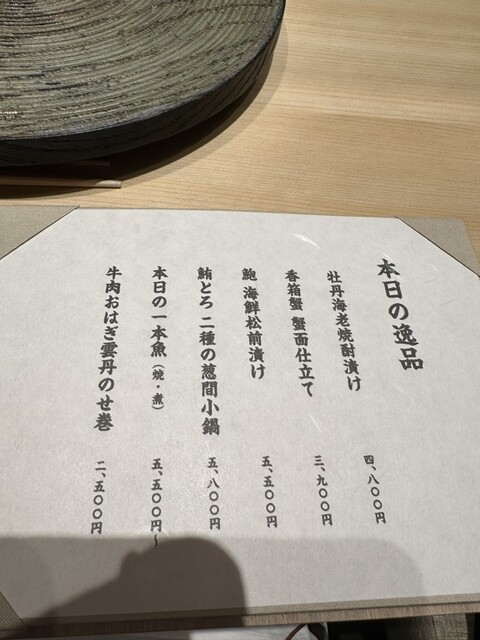 本日の逸品
牡丹海老焼酎漬け 四、八〇〇円
香箱蟹 蟹面仕立て 三、九〇〇円
鮑 海鮮松前漬け 五、五〇〇円
鮪とろ 二種の葱間小鍋 五、八〇〇円
本日の一本魚（焼・煮） 五、五〇〇円〜
牛肉おはぎ雲丹のせ巻 二、五〇〇円